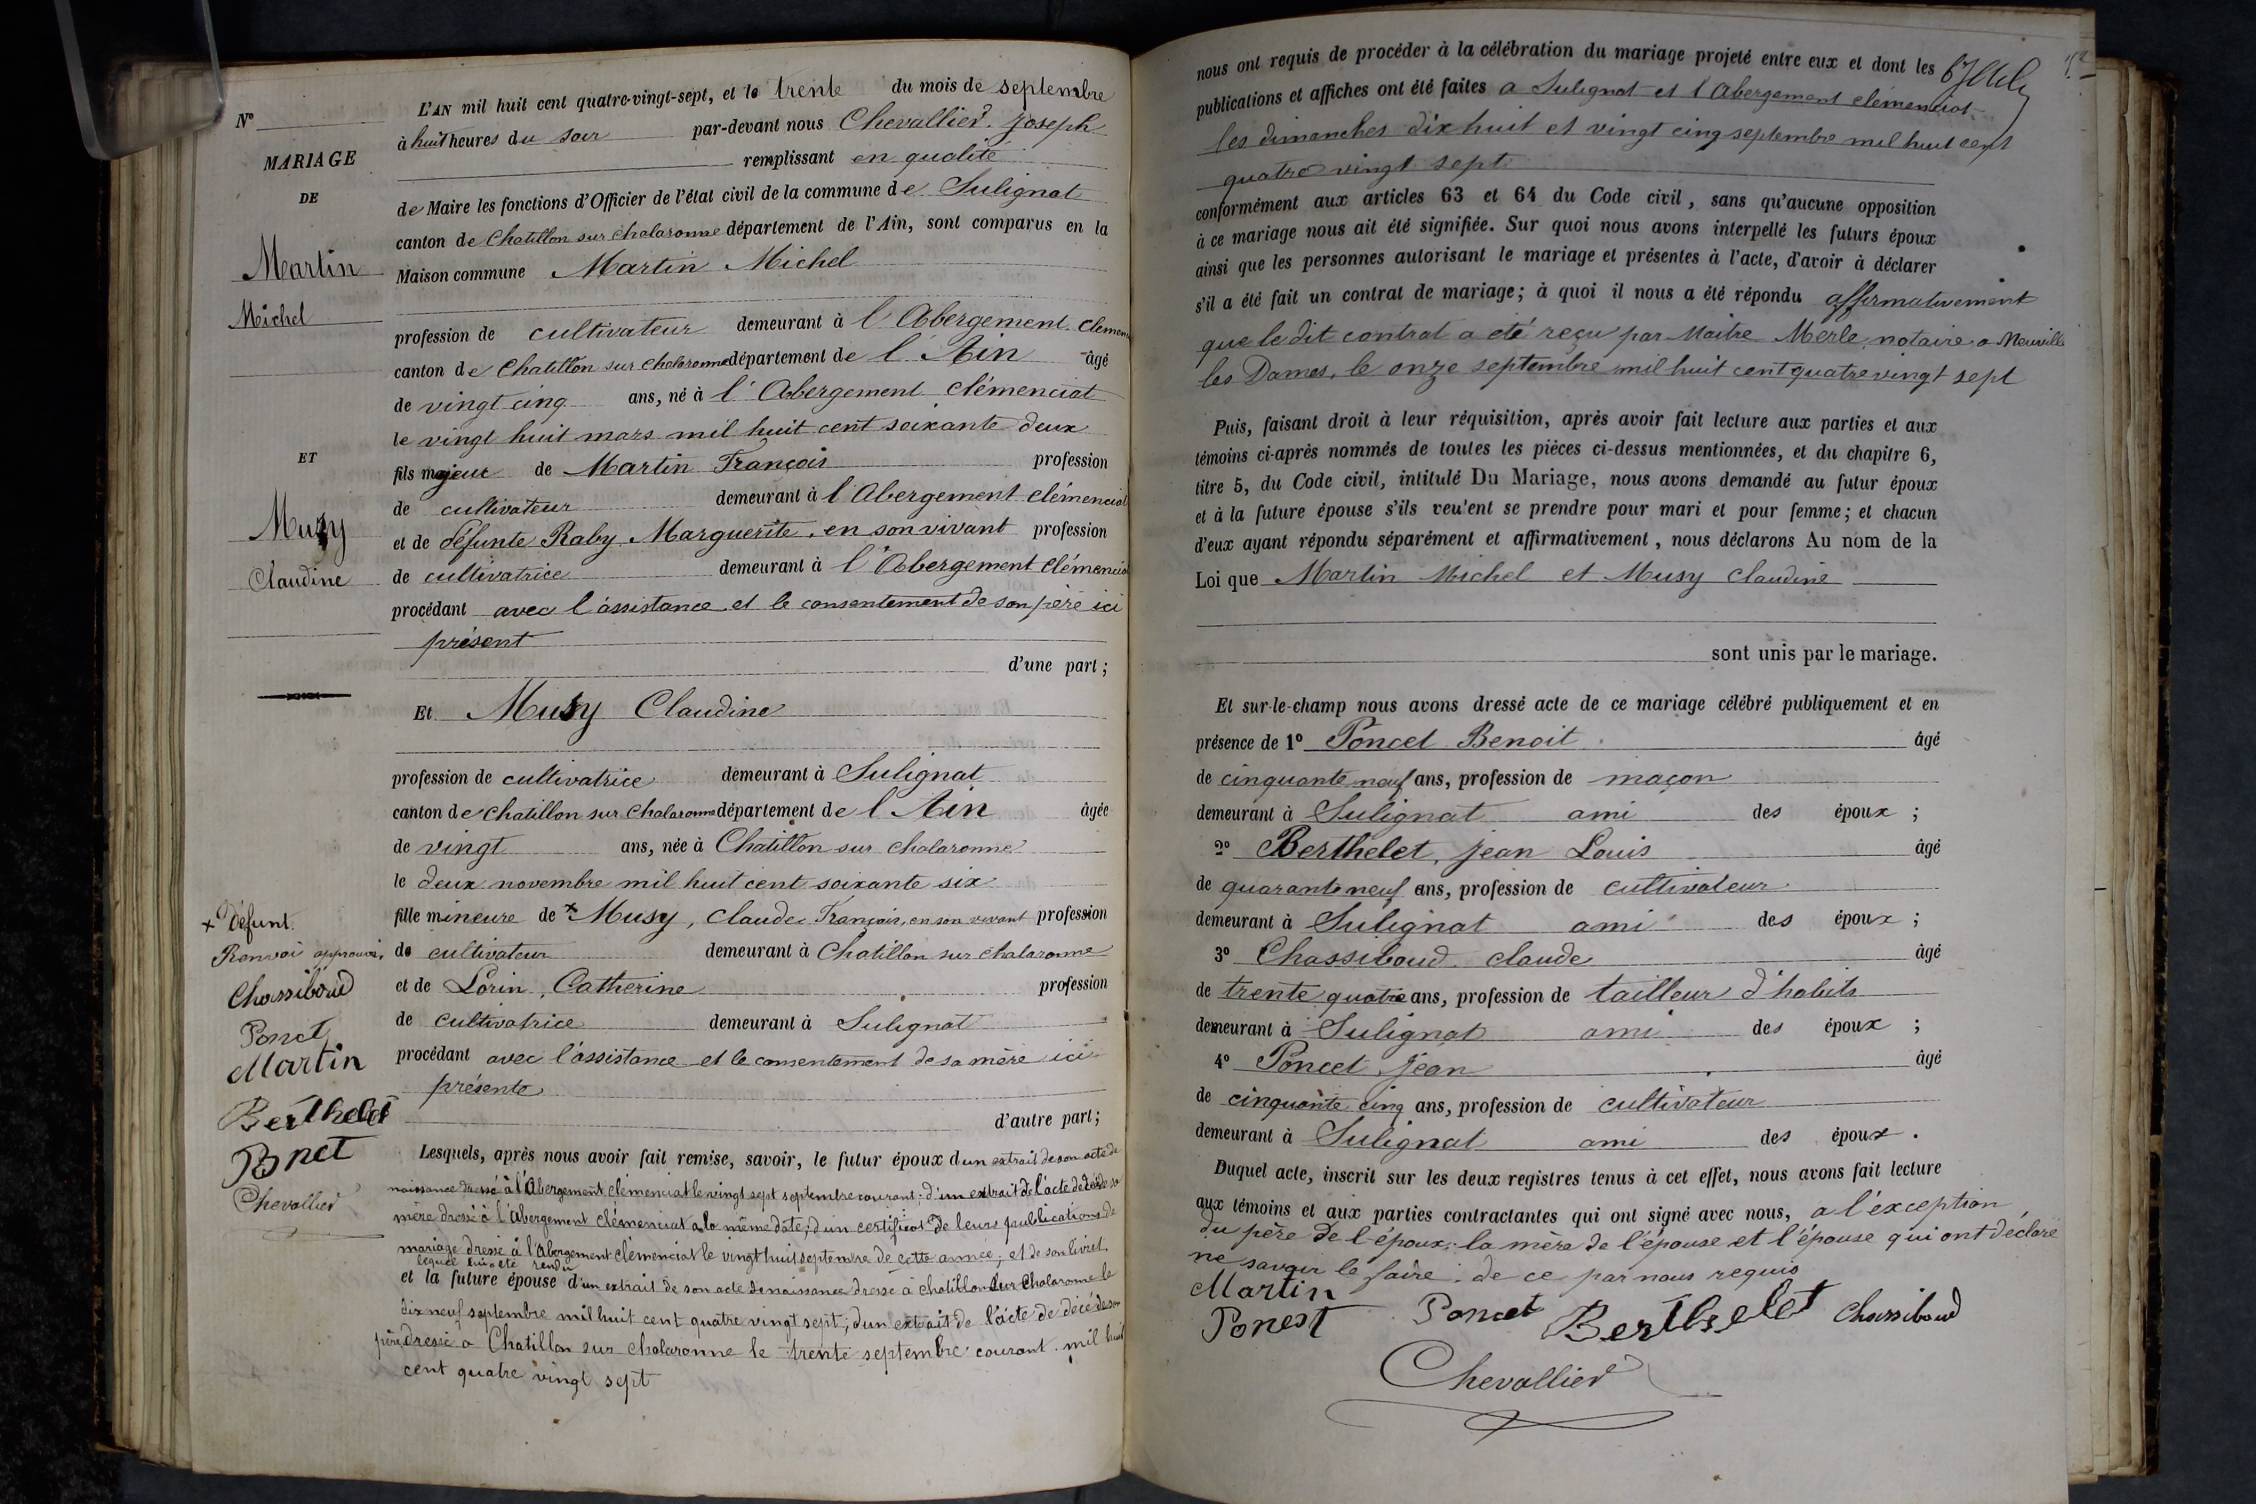 N°
MARIAGE
DE
Martin
Michel
ET
Musy
Claudine
+ Défunt
Renvoi approuvé,
Chassiboud
Poncet
Martin
Berthelet
Poncet
Chevallier
L'AN mil huit cent quatre-vingt-sept, et le trente du mois de septembre
à huit heures du soir par-devant nous Chevallier Joseph
remplissant en qualité
de Maire les fonctions d'Officier de l'état civil de la commune de Sulignat
canton de Chatillon sur chalaronne département de l'Ain, sont comparus en la
Maison commune Martin Michel
profession de cultivateur demeurant à l'Abergement. clemen
canton de Chatillon sur chalaronne département de l'Ain âgé
de vingt cinq ans, né à l'Abergement clémenciat
le vingt huit mars mil huit cent soixante deux
fils majeur de Martin François profession
de cultivateur demeurant à l'Abergement clémenciat
et de défunte Raby Marguerite, en son vivant profession
de cultivatrice demeurant à l'Abergement clémencia
procédant avec l'assistance et le consentement de son père ici
présent
d'une part ;
Et Musy Claudine
profession de cultivatrice demeurant à Sulignat
canton de chatillon sur chalaronne département de l'Ain âgée
de vingt ans, née à Chatillon sur chalaronne
le deux novembre mil huit cent soixante six
fille mineure de + Musy, claude François, en son vivant profession
de cultivateur demeurant à Chatillon sur chalaronne
et de Lorin, Catherine profession
de cultivatrice demeurant à Sulignat
procédant avec l'assistance et le consentement de sa mère ici
présente
d'autre part ;
Lesquels, après nous avoir fait remise, savoir, le futur époux d'un extrait de son acte de
naissance dressé à l'Abergement clémenciat le vingt sept septembre courant ; d'un extrait de l'acte de décès de sa
mère dressé à l'Abergement clémenciat a la même date, d'un certificat de leurs publications de
mariage dressé à l'Abergement clémenciat le vingt huit septembre de cette année ; et de son livret
lequel lui a été rendu
et la future épouse d'un extrait de son acte de naissance dressé a chatillon sur chalaronne le
dix neuf septembre mil huit cent quatre vingt sept ; d'un extrait de l'acte de décé de son
père dressé a Chatillon sur chalaronne le trente septembre courant mil huit
cent quatre vingt sept
nous ont requis de procéder à la célébration du mariage projeté entre eux et dont les
publications et affiches ont été faites a Sulignat et l'Abergement clémenciat
les dimanches dix huit et vingt cinq septembre mil huit cent
quatre vingt sept
conformément aux articles 63 et 64 du Code civil, sans qu'aucune opposition
à ce mariage nous ait été signifiée. Sur quoi nous avons interpellé les futurs époux
ainsi que les personnes autorisant le mariage et présentes à l'acte, d'avoir à déclarer
s'il a été fait un contrat de mariage ; à quoi il nous a été répondu affirmativement
que le dit contrat a été reçu par Maitre Merle, notaire a Neuville
les Dames, le onze septembre mil huit cent quatre vingt sept
Puis, faisant droit à leur réquisition, après avoir fait lecture aux parties et aux
témoins ci-après nommés de toutes les pièces ci-dessus mentionnées, et du chapitre 6,
titre 5, du Code civil, intitulé Du Mariage, nous avons demandé au futur époux
et à la future épouse s'ils veulent se prendre pour mari et pour femme ; et chacun
d'eux ayant répondu séparément et affirmativement, nous déclarons Au nom de la
Loi que Martin Michel et Musy claudine
sont unis par le mariage.
Et sur-le-champ nous avons dressé acte de ce mariage célébré publiquement et en
présence de 1° Poncet Benoit âgé
de cinquante neuf ans, profession de maçon
demeurant à Sulignat ami des époux ;
2° Berthelet, Jean Louis âgé
de quarante neuf ans, profession de cultivateur
demeurant à Sulignat ami des époux ;
3° Chassiboud claude âgé
de trente quatre ans, profession de tailleur d'habits
demeurant à Sulignat ami des époux ;
4° Poncet Jean âgé
de cinquante cinq ans, profession de cultivateur
demeurant à Sulignat ami des époux .
Duquel acte, inscrit sur les deux registres tenus à cet effet, nous avons fait lecture
aux témoins et aux parties contractantes qui ont signé avec nous, a l'exception
du père de l'époux, la mère de l'épouse et l'épouse qui ont déclaré
ne savoir le faire. de ce par nous requis
Martin
Poncet Poncet Berthelet Chassiboud
Chevallier